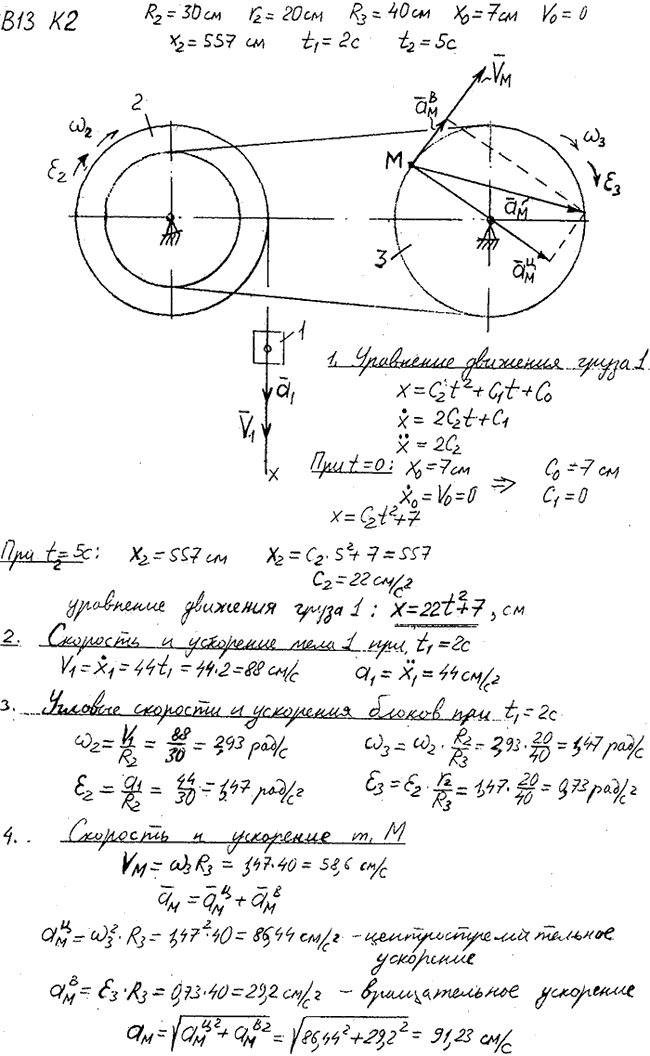 В13 К2 R₂=30см r₂=20см R₃=40см x₀=7см V₀=0
x₂=557 см t₁=2с t₂=5с
V̄м
āмᴮ
2
ω₂
ε₂
М
ω₃
ε₃
āм
āмᶣ
3
1
ā₁
V̄₁
x
1. Уравнение движения груза 1
x=C₂t²+C₁t+C₀
ẋ=2C₂t+C₁
ẍ=2C₂
При t=0: x₀=7см ⇒ C₀=7 см
ẋ₀=V₀=0 C₁=0
x=C₂t²+7
При t₂=5с: x₂=557 см x₂=C₂·5²+7=557
C₂=22 см/с²
уравнение движения груза 1: x=22t²+7, см
2. Скорость и ускорение тела 1 при t₁=2с
V₁=ẋ₁=44t₁=44·2=88 см/с a₁=ẍ₁=44 см/с²
3. Угловые скорости и ускорения блоков при t₁=2с
ω₂=V₁/R₂=88/30=2,93 рад/с ω₃=ω₂·R₂/R₃=2,93·20/40=1,47 рад/с
ε₂=a₁/R₂=44/30=1,47 рад/с² ε₃=ε₂·r₂/R₃=1,47·20/40=0,73 рад/с²
4. Скорость и ускорение т. М
Vм=ω₃R₃=1,47·40=58,6 см/с
āм=āмᶣ+āмᴮ
aмᶣ=ω₃²·R₃=1,47²·40=86,44 см/с² – центростремительное
ускорение
aмᴮ=ε₃·R₃=0,73·40=29,2 см/с² – вращательное ускорение
aм=√(aмᶣ²+aмᴮ²)=√(86,44²+29,2²)=91,23 см/с